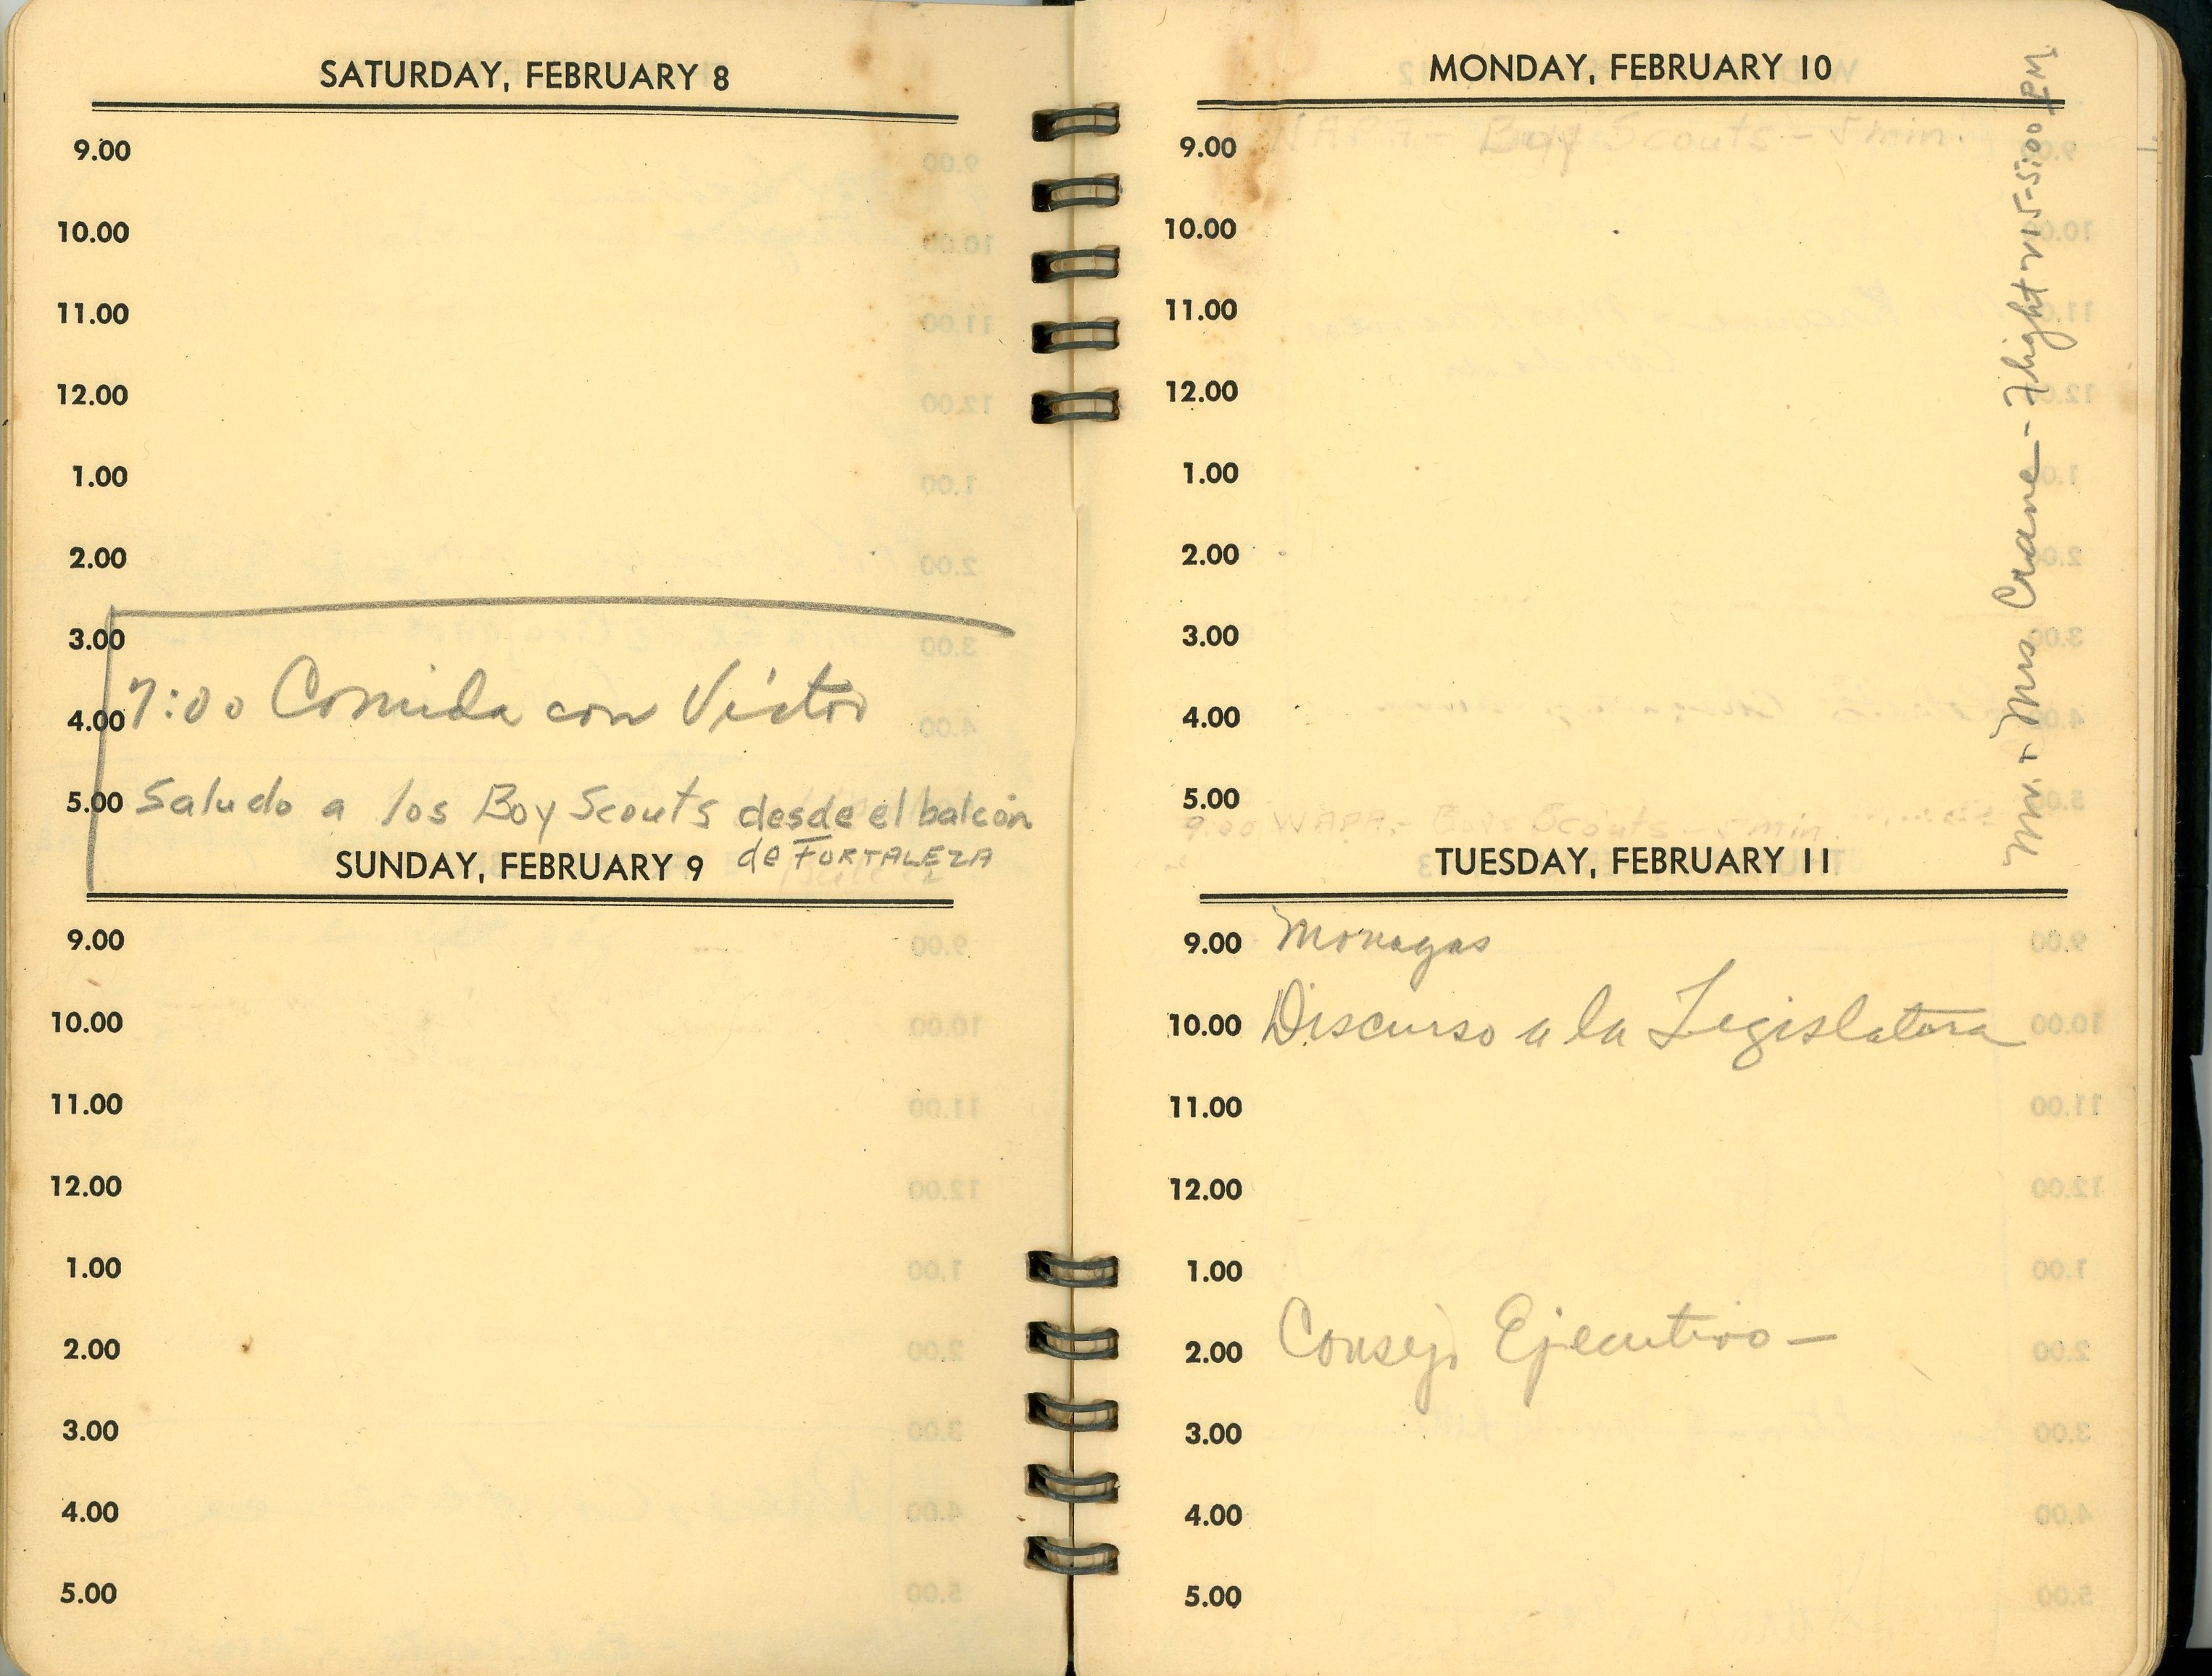 SATURDAY, FEBRUARY 8
9.00
10.00
11.00
12.00
1.00
2.00
3.00
7:00 Comida con Víctor
4.00
5.00 Saludo a los Boy Scouts desde el balcón
de FORTALEZA
SUNDAY, FEBRUARY 9
9.00
10.00
11.00
12.00
1.00
2.00
3.00
4.00
5.00
MONDAY, FEBRUARY 10
9.00 WAPA - Boy Scouts - 5 min.
10.00
11.00
12.00
1.00
2.00
3.00
4.00
5.00
9:00 WAPA - Boys Scouts - 5 min.
Mr. + Mrs Crane - Flight 215 - 5:00 PM
TUESDAY, FEBRUARY 11
9.00 Monagas
10.00 Discurso a la Legislatura
11.00
12.00
1.00
2.00 Consejo Ejecutivo -
3.00
4.00
5.00